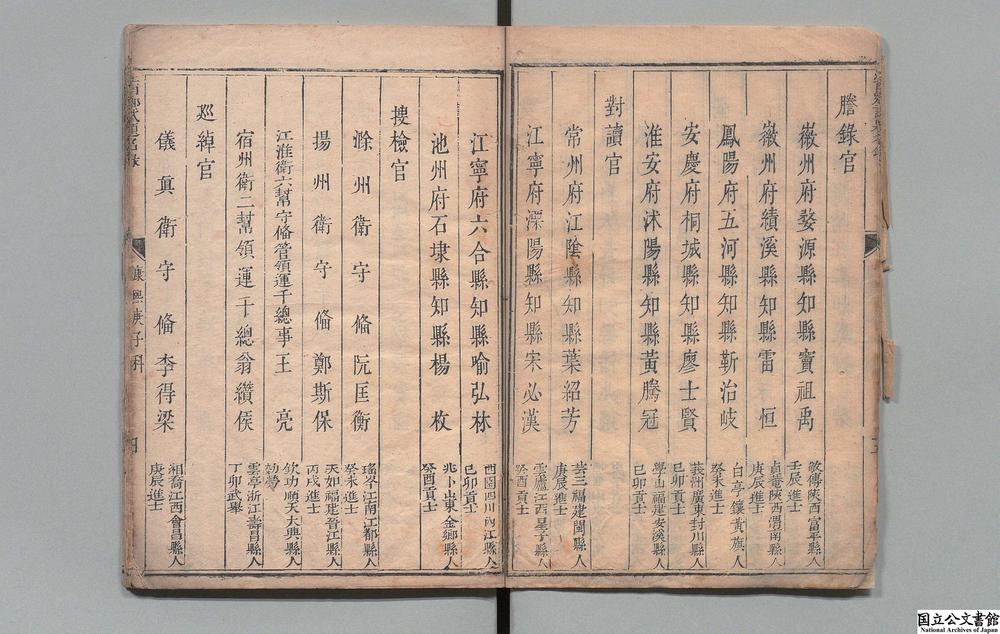 謄錄官
徽州府婺源縣知縣竇祖禹
敬傳陝西富平縣人
壬辰進士
徽州府績溪縣知縣雷恒
貞菴陝西渭南縣人
庚辰進士
鳳陽府五河縣知縣靳治岐
白亭鑲黃旗人
癸未進士
安慶府桐城縣知縣廖士賢
義州廣東封川縣人
己卯貢士
淮安府沭陽縣知縣黃騰冠
學山福建安溪縣人
己卯貢士
對讀官
常州府江陰縣知縣葉紹芳
芸三福建閩縣人
庚辰進士
江寧府溧陽縣知縣宋必漢
雲廬江西星子縣人
癸酉貢士
江寧府六合縣知縣喻弘林
酉園四川內江縣人
己卯貢士
池州府石埭縣知縣楊枚
兆卜山東金鄉縣人
癸酉貢士
搜檢官
滁州衛守俻阮匡衡
瑤岑江南江都縣人
癸未進士
揚州衛守俻鄭斯保
天如福建晉江縣人
丙戌進士
江淮衛六幫守俻管領運千總事王亮
欽功順天大興縣人
効勞
宿州衛二幫領運千總翁纘俟
雲亭浙江壽昌縣人
丁卯武舉
廵綽官
儀眞衛守俻李得梁
湘喬江西會昌縣人
庚辰進士
康熙庚子科
四
国立公文書館
National Archives of Japan